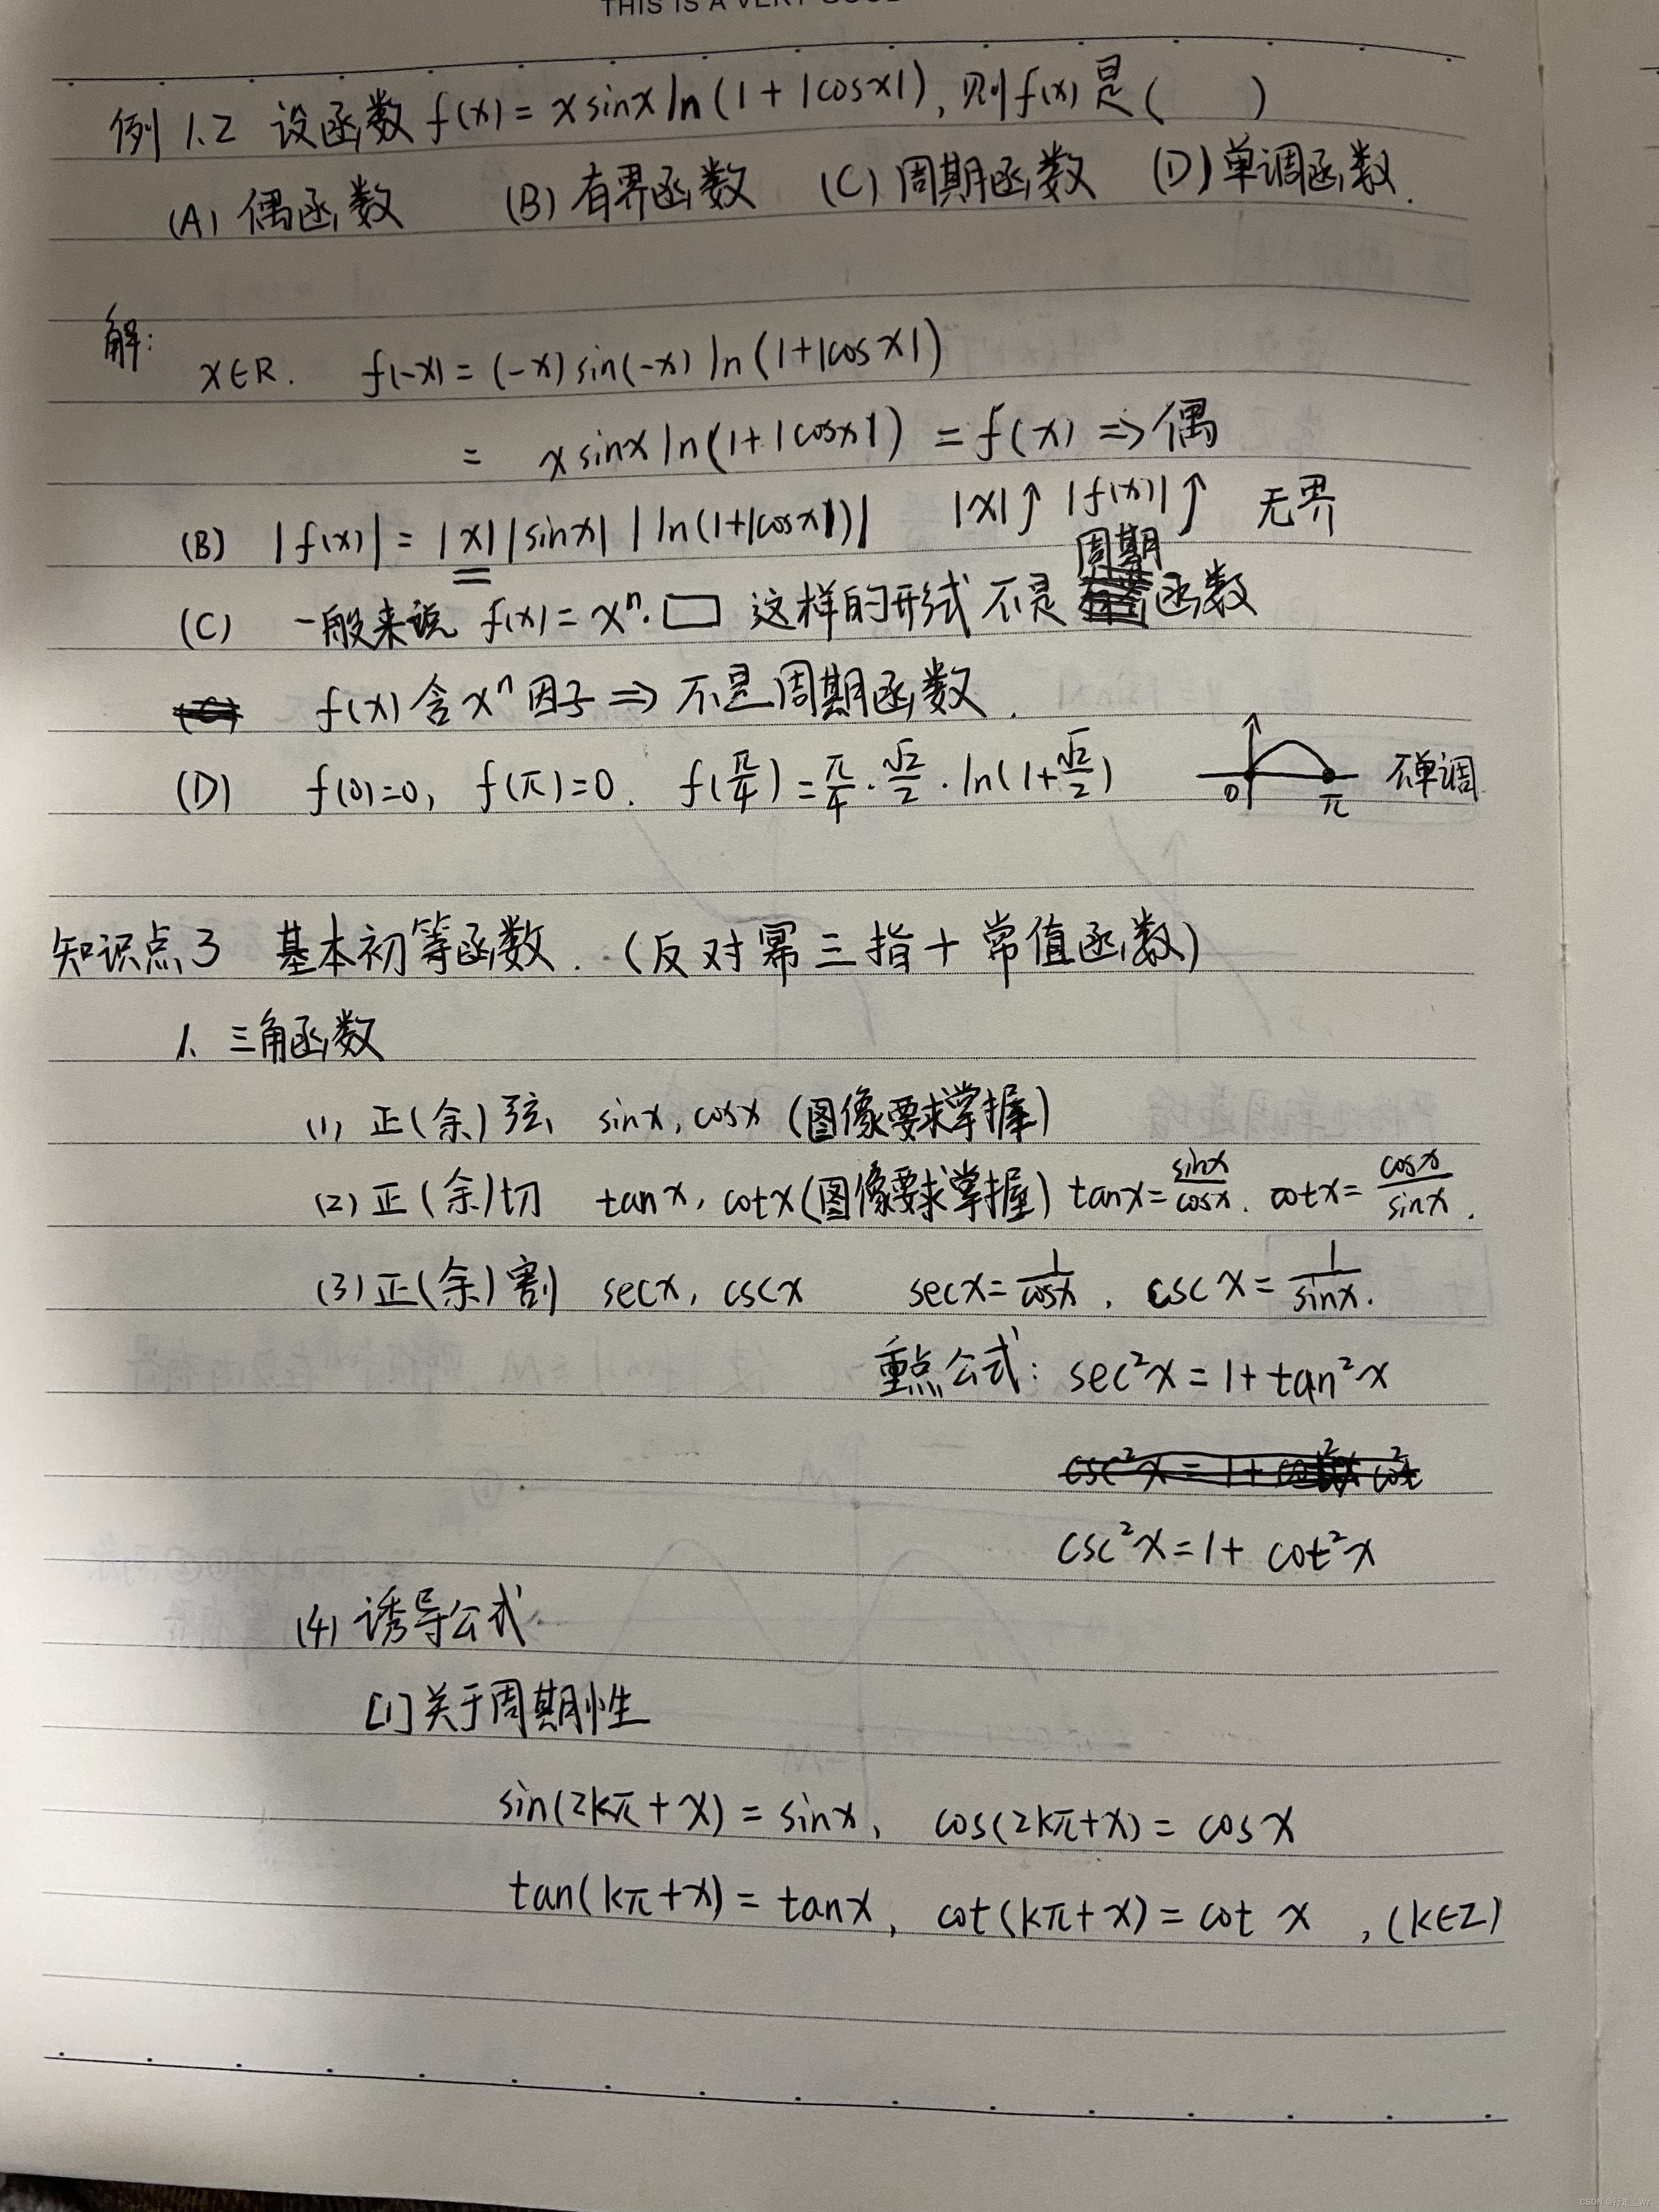 THIS IS A VERY GOOD
例1.2 设函数 f(x) = x sinx ln(1+|cosx|), 则f(x)是( )
(A) 偶函数 (B) 有界函数 (C) 周期函数 (D) 单调函数.
解:
x∈R. f(-x) = (-x) sin(-x) ln(1+|cosx|)
= x sinx ln(1+|cosx|) = f(x) ⇒ 偶
(B) |f(x)| = |x| |sinx| |ln(1+|cosx|)| |x|↑ |f(x)|↑ 无界
(C) 一般来说 f(x) = xⁿ·□ 这样的形式 不是周期函数
f(x) 含 xⁿ 因子 ⇒ 不是周期函数.
(D) f(0)=0, f(π)=0. f(π/4) = π/4 · √2/2 · ln(1+√2/2) 0 π 不单调
知识点3 基本初等函数. (反对幂三指+常值函数)
1. 三角函数
(1) 正(余)弦 sinx, cosx (图像要求掌握)
(2) 正(余)切 tanx, cotx (图像要求掌握) tanx = sinx/cosx. cotx = cosx/sinx.
(3) 正(余)割 secx, cscx secx = 1/cosx, cscx = 1/sinx.
重点公式: sec²x = 1 + tan²x
csc²x = 1 + cot²x
(4) 诱导公式
[1] 关于周期性
sin(2kπ+x) = sinx, cos(2kπ+x) = cosx
tan(kπ+x) = tanx, cot(kπ+x) = cot x , (k∈Z)
CSDN @行走__Wz